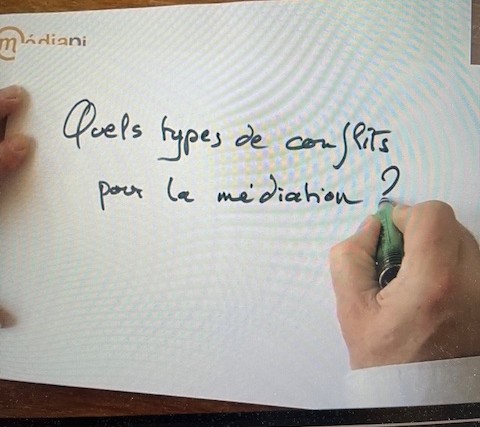 médiani
Quels types de conflits
pour la médiation ?